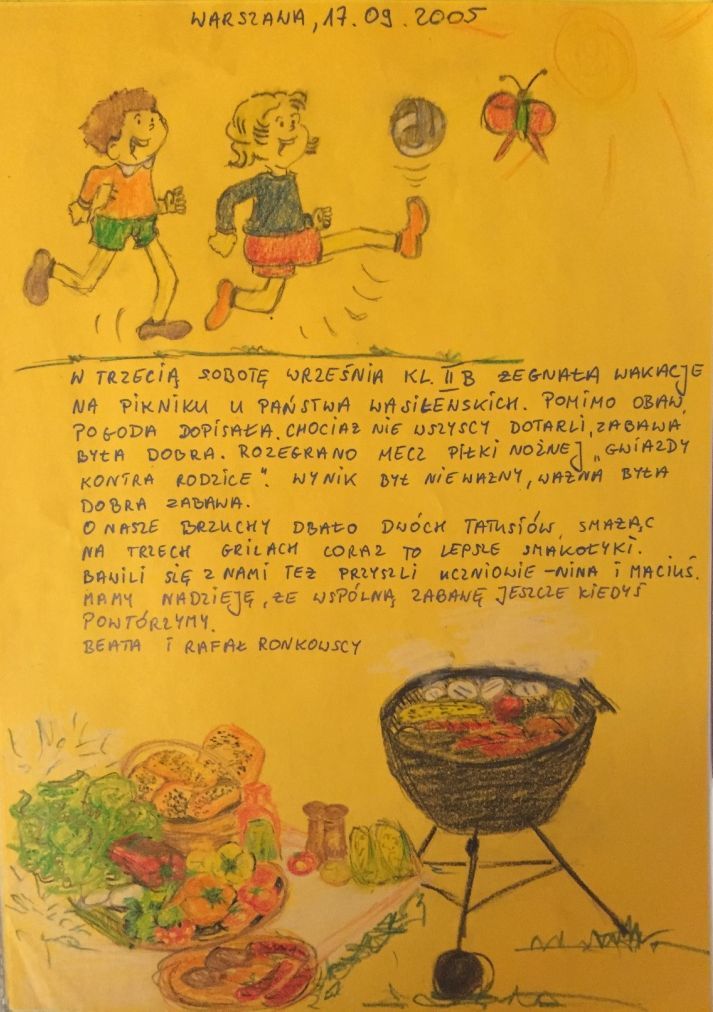 WARSZAWA, 17.09.2005
W TRZECIĄ SOBOTĘ WRZEŚNIA KL. II B ŻEGNAŁA WAKACJE
NA PIKNIKU U PAŃSTWA WASILEŃSKICH. POMIMO OBAW,
POGODA DOPISAŁA. CHOCIAŻ NIE WSZYSCY DOTARLI, ZABAWA
BYŁA DOBRA. ROZEGRANO MECZ PIŁKI NOŻNEJ „GWIAZDY
KONTRA RODZICE". WYNIK BYŁ NIEWAŻNY, WAŻNA BYŁA
DOBRA ZABAWA.
O NASZE BRZUCHY DBAŁO DWÓCH TATUSIÓW, SMAŻĄC
NA TRZECH GRILACH CORAZ TO LEPSZE SMAKOŁYKI.
BAWILI SIĘ Z NAMI TEŻ PRZYSZLI UCZNIOWIE - NINA I MACIUŚ.
MAMY NADZIEJĘ, ŻE WSPÓLNĄ ZABAWĘ JESZCZE KIEDYŚ
POWTÓRZYMY.
BEATA I RAFAŁ RONKOWSCY